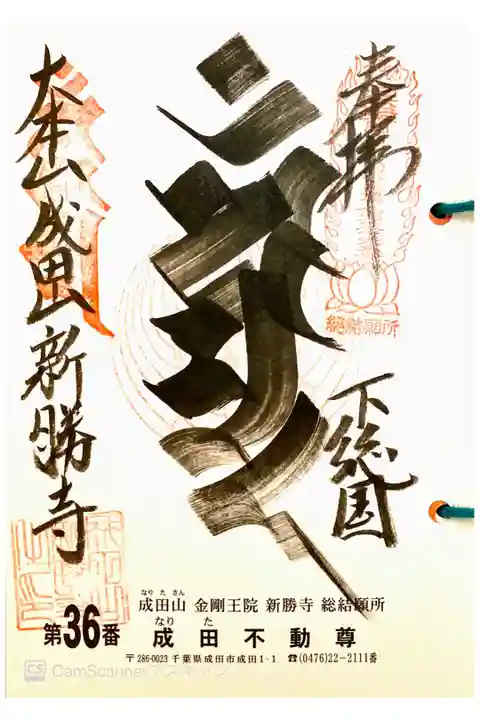 奉拝
総結願所
下総国
大本山成田山新勝寺
なりたさん
成田山 金剛王院 新勝寺 総結願所
なりた
第36番 成田不動尊
〒286-0023 千葉県成田市成田1-1 ☎(0476)22-2111番
CS CamScanner